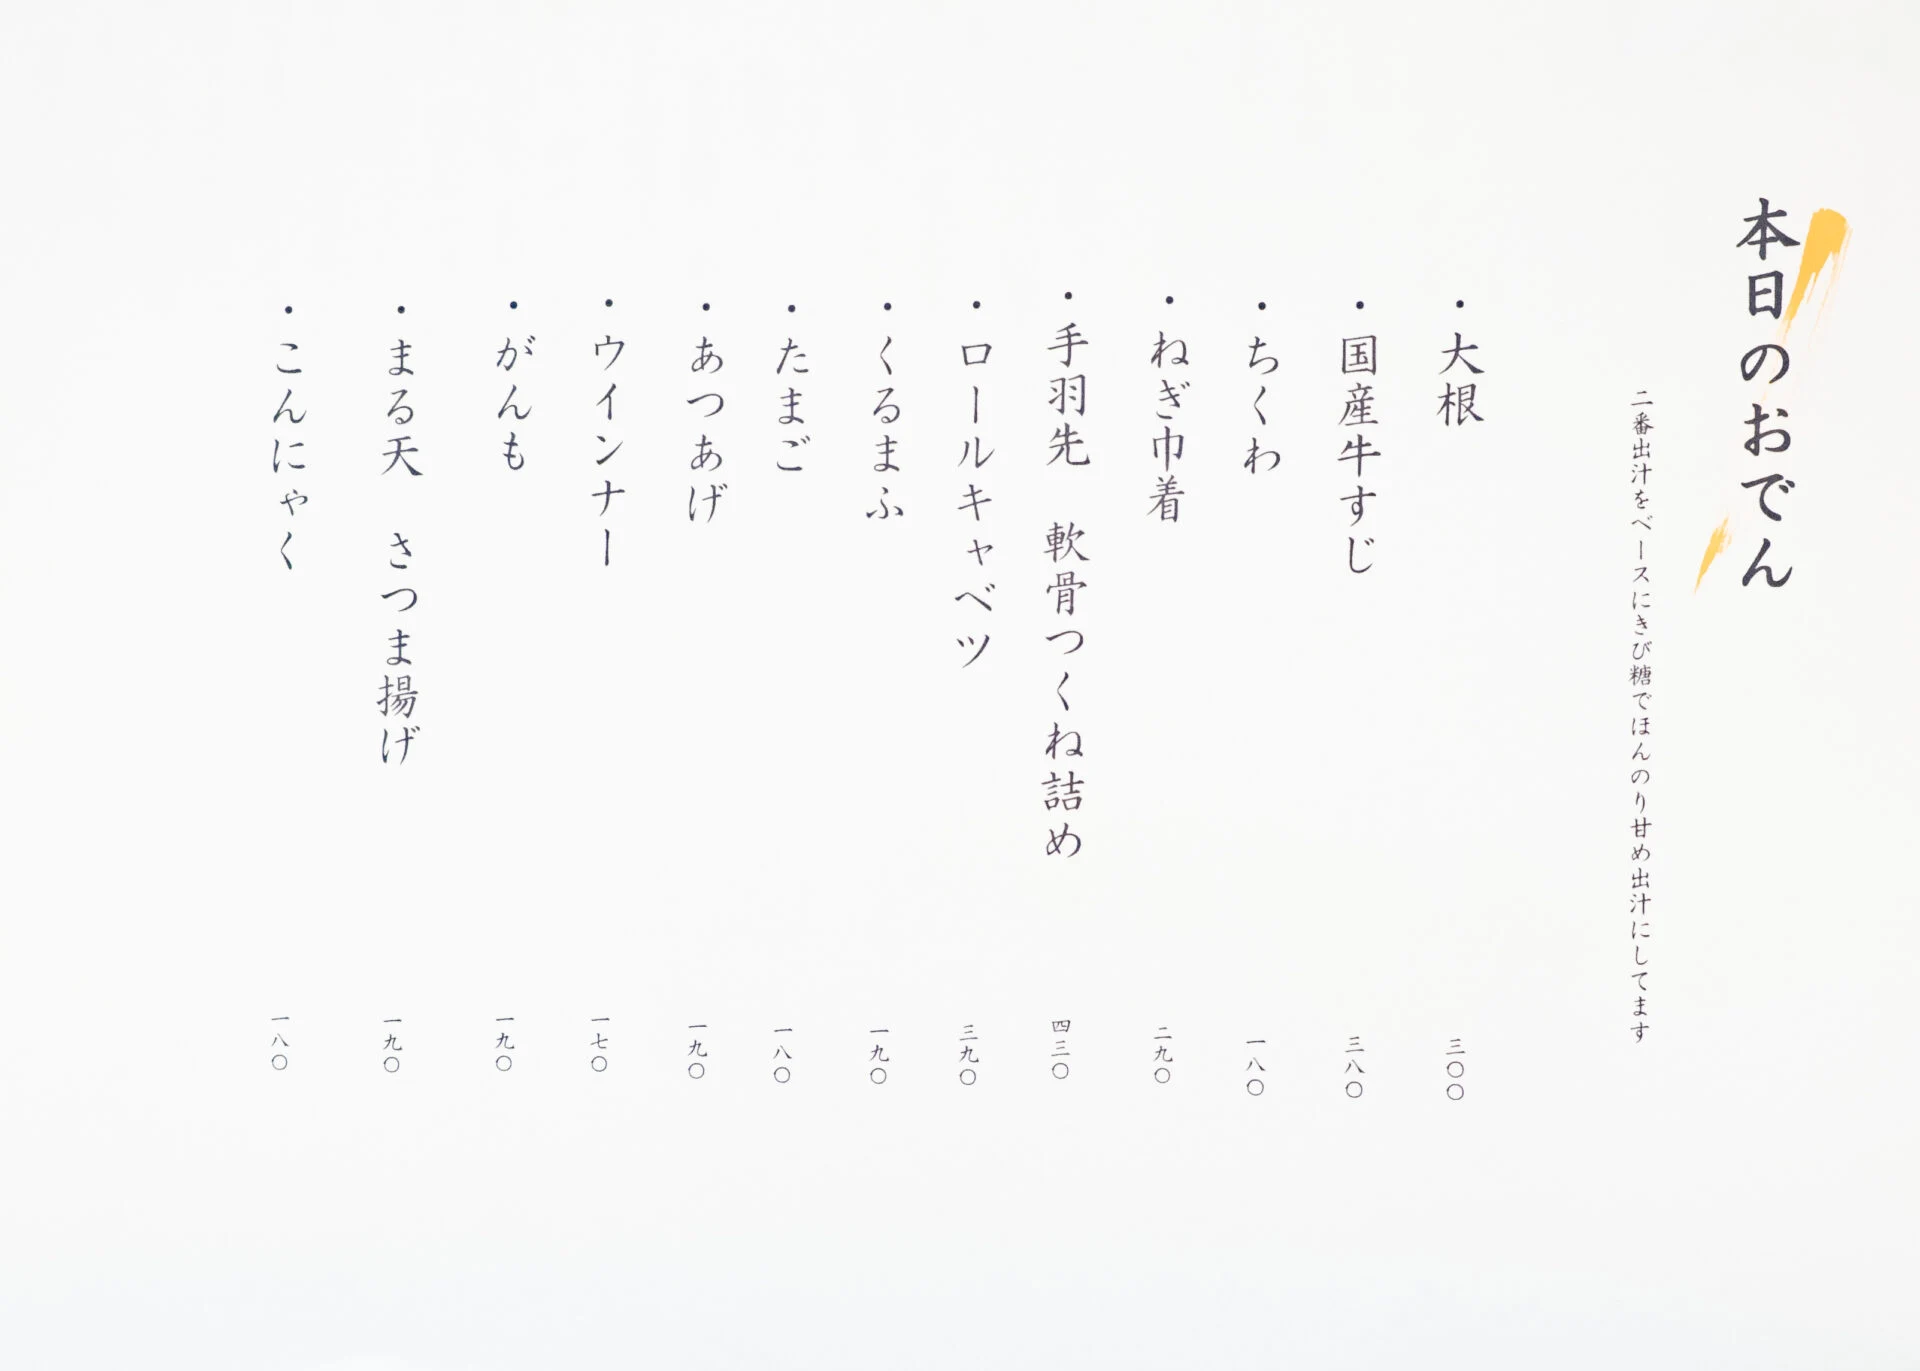 本日のおでん
二番出汁をベースにきび糖でほんのり甘め出汁にしてます
・大根 三〇〇
・国産牛すじ 三八〇
・ちくわ 一八〇
・ねぎ巾着 二九〇
・手羽先 軟骨つくね詰め 四三〇
・ロールキャベツ 三九〇
・くるまふ 一九〇
・たまご 一八〇
・あつあげ 一九〇
・ウインナー 一七〇
・がんも 一九〇
・まる天 さつま揚げ 一九〇
・こんにゃく 一八〇